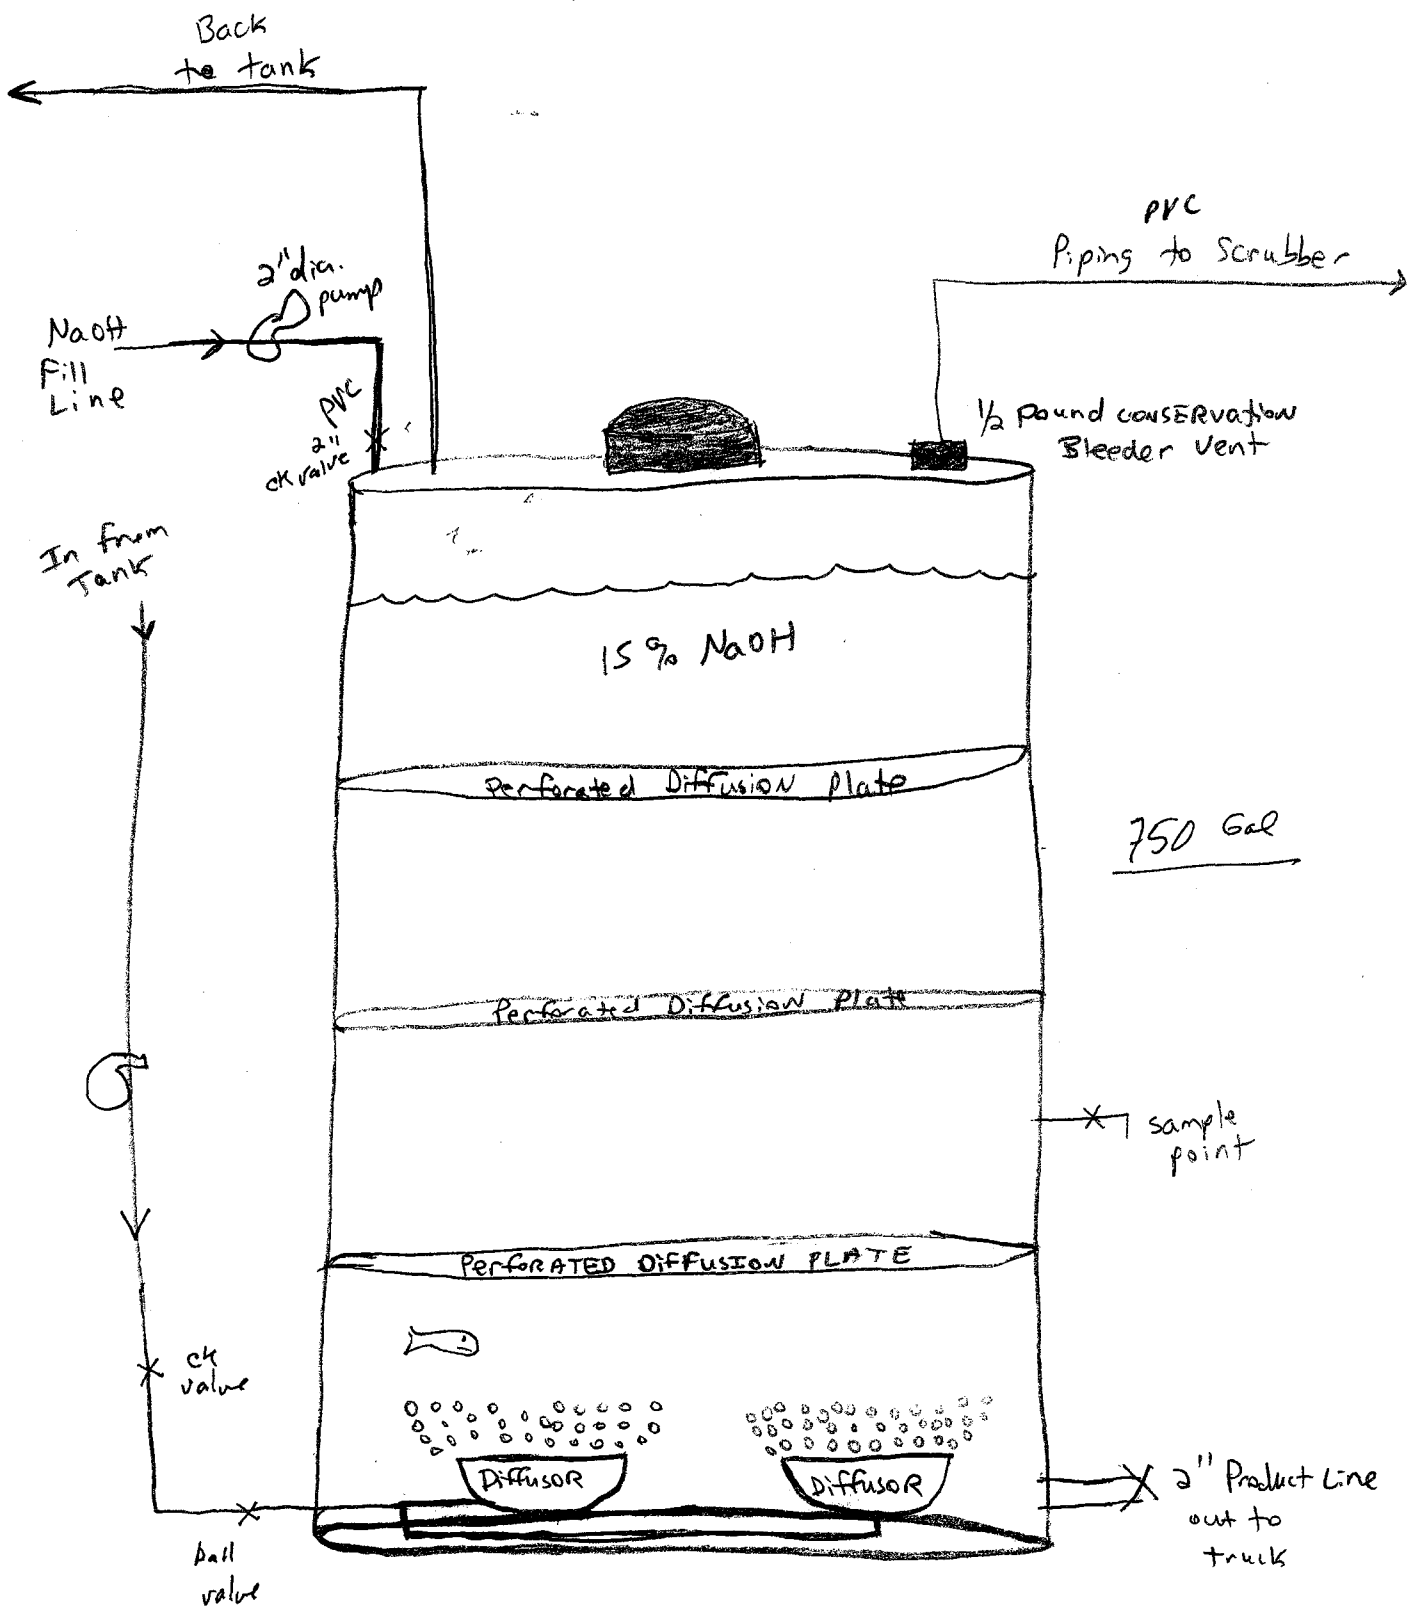 Back
to tank
PVC
Piping to Scrubber
2" dia.
pump
NaOH
Fill
Line
PVC
2"
ck valve
1/2 pound CONSERVATION
Bleeder vent
In from
Tank
15% NaOH
Perforated Diffusion Plate
750 Gal
Perforated Diffusion Plate
sample
point
PERFORATED DIFFUSION PLATE
ck
valve
Diffusor
Diffusor
2" Product Line
out to
truck
ball
valve